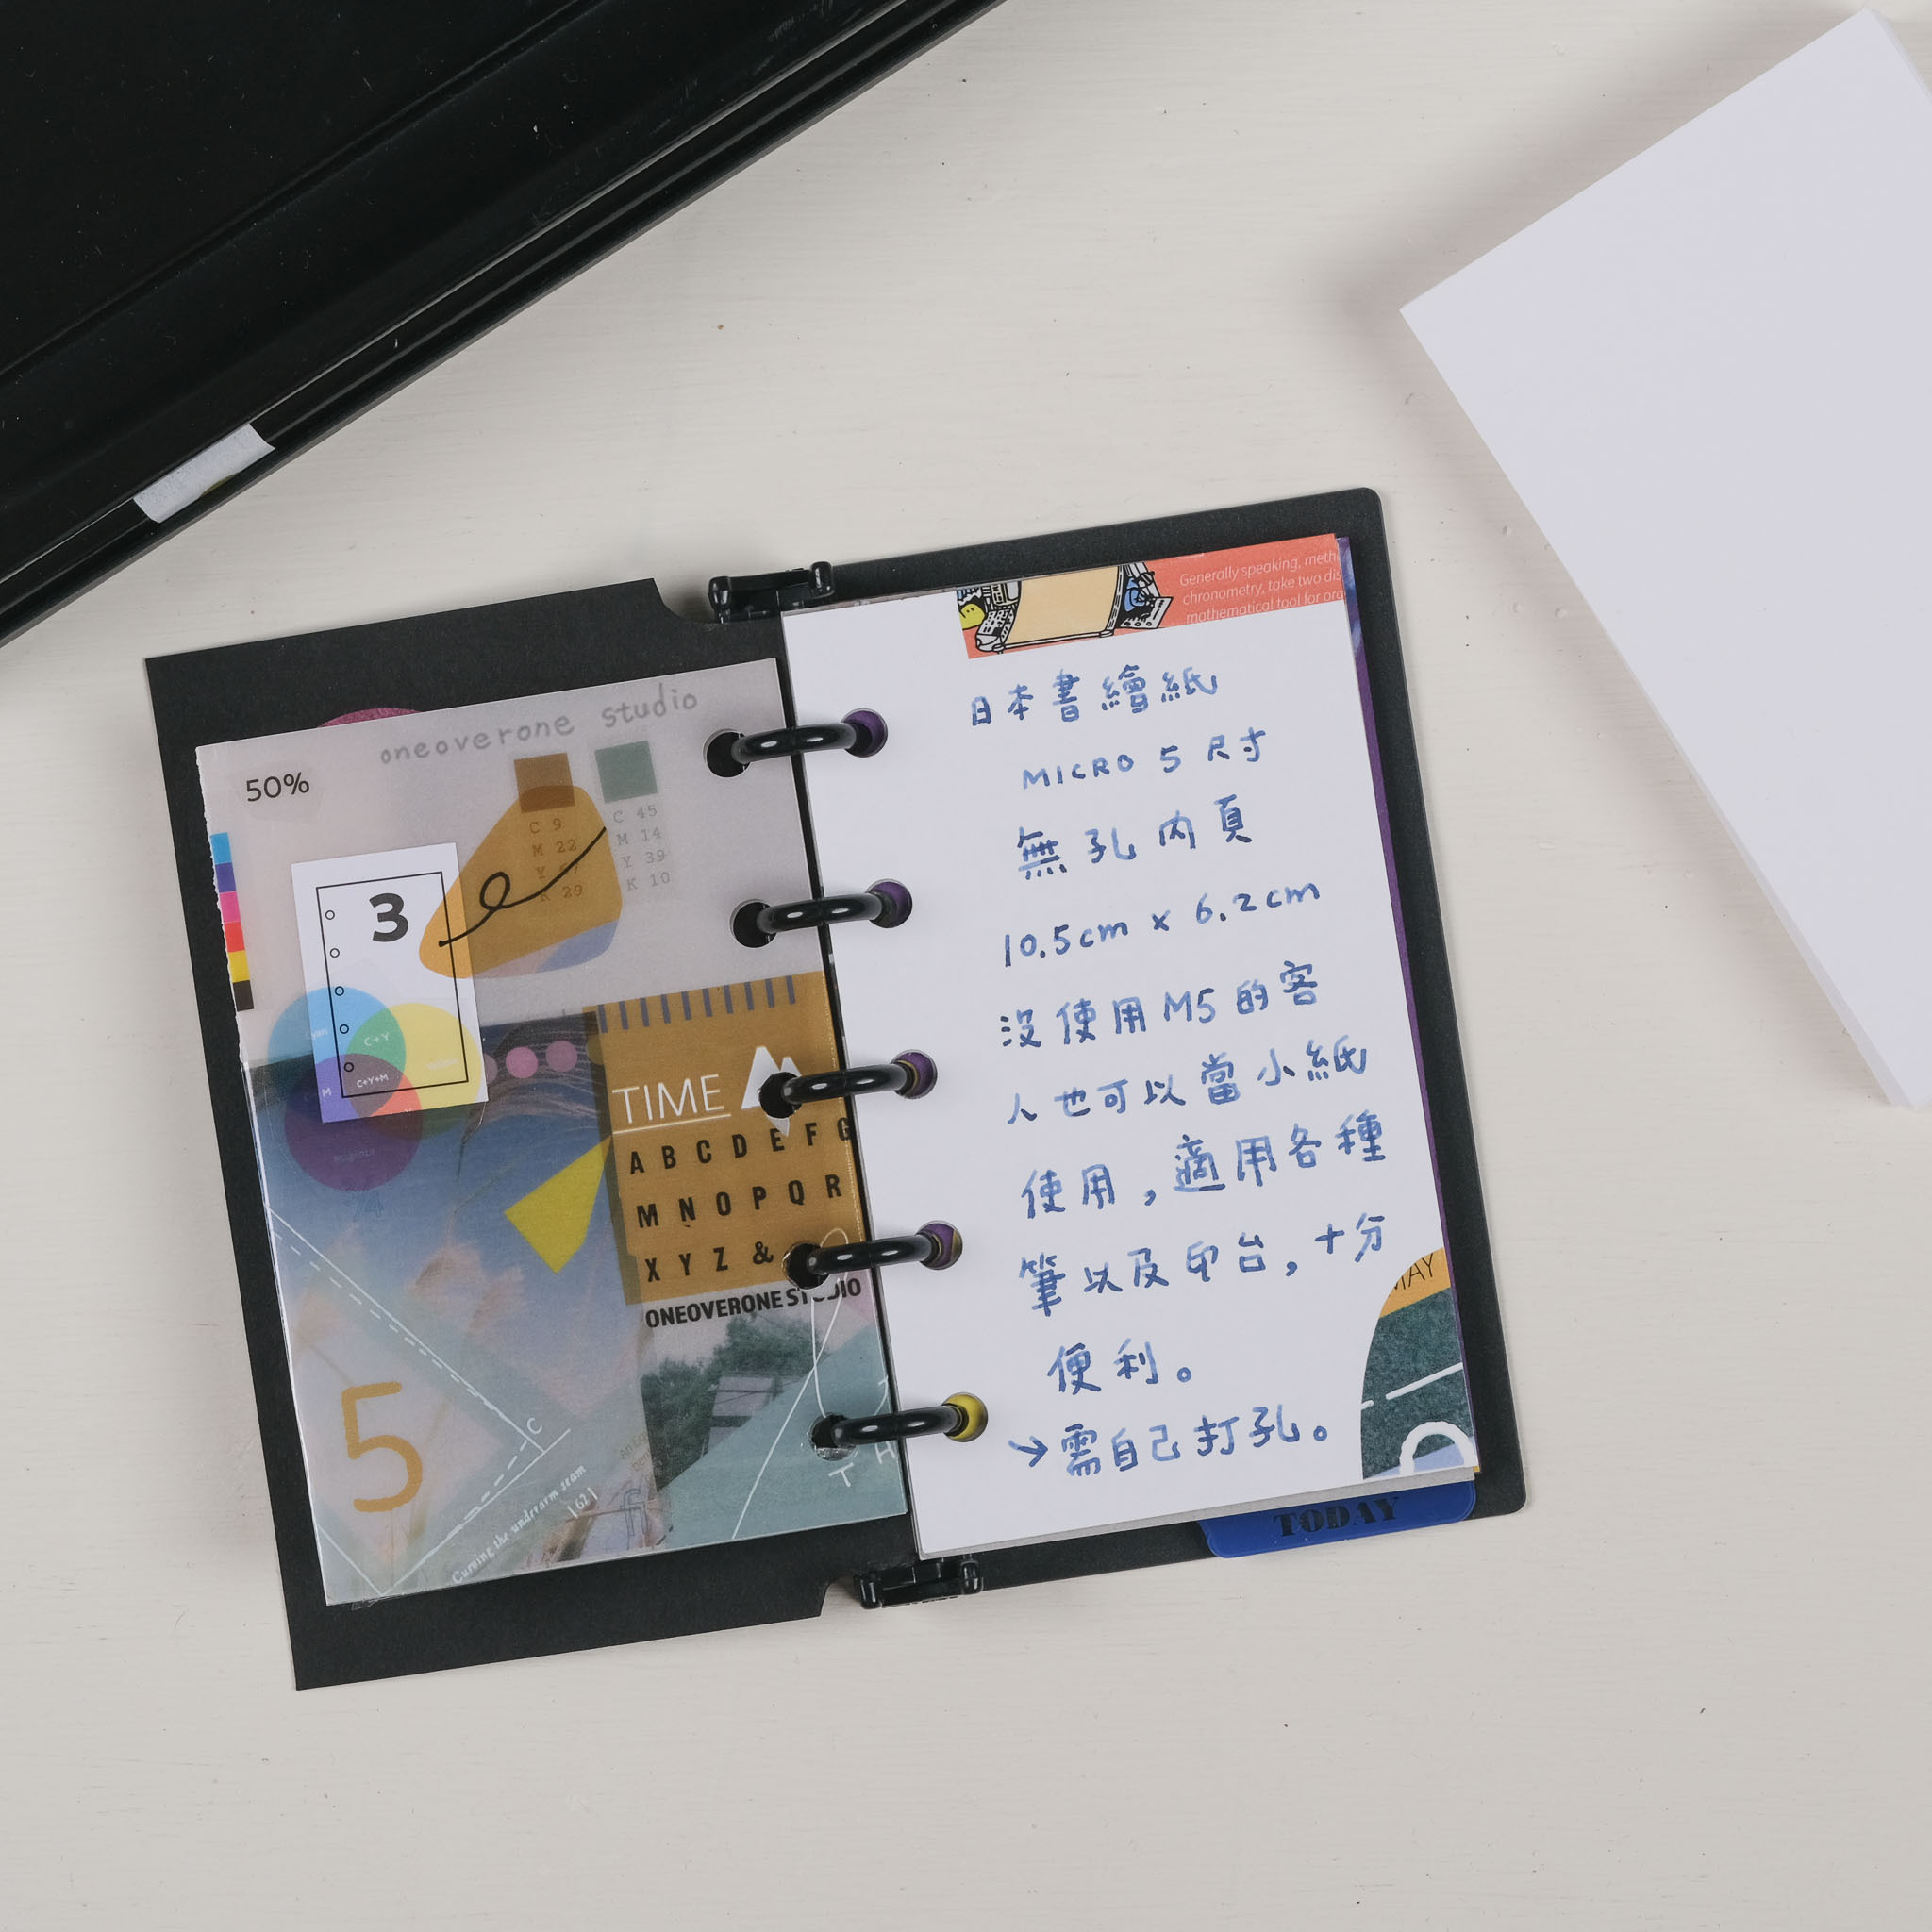 oneoverone studio
50%
C 9
M 22
K 29
C 45
M 14
Y 39
K 10
3
C+Y
C+Y+M
M
TIME
A B C D E F G
M N O P Q R
X Y Z &
ONEOVERONE STUDIO
5
C
T H
Curving the underarm seam
| 62 |
Generally speaking, meth
chronometry, take two dis
mathematical tool for ord
日本書繪紙
MICRO 5 尺寸
無孔內頁
10.5cm x 6.2cm
沒使用M5的客
人也可以當小紙
使用，適用各種
筆以及印台，十分
便利。
→需自己打孔。
MAY
TODAY